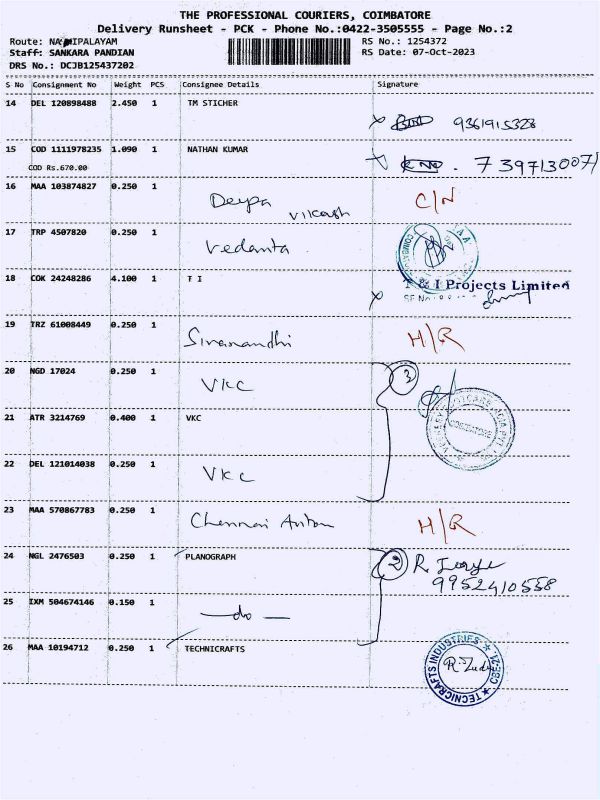 THE PROFESSIONAL COURIERS, COIMBATORE
Delivery Runsheet - PCK - Phone No.:0422-3505555 - Page No.:2
Route: NA IPALAYAM
Staff: SANKARA PANDIAN
DRS No.: DCJB125437202
RS No.: 1254372
RS Date: 07-Oct-2023
S No Consignment No Weight PCS Consignee Details Signature
14 DEL 120898488 2.450 1 TM STICHER
9361915328
15 COD 1111978235 1.090 1 NATHAN KUMAR
COD Rs.670.00
7397130071
16 MAA 103874827 0.250 1 Deepa Vikash C/N
17 TRP 4507820 0.250 1 Vedanta
18 COK 24248286 4.100 1 T I
& I Projects Limited
19 TRZ 61008449 0.250 1 Sivanandhi H/R
20 NGD 17024 0.250 1 VKC 3
21 ATR 3214769 0.400 1 VKC
COIMBATORE
22 DEL 121014038 0.250 1 VKC
23 MAA 570867783 0.250 1 Chennai Anton H/R
24 NGL 2476503 0.250 1 PLANOGRAPH 2 R.
9952410558
25 IXM 504674146 0.150 1 - do -
26 MAA 10194712 0.250 1 TECHNICRAFTS
TECNICRAFTS INDUSTRIES ★ CBE-21 ★